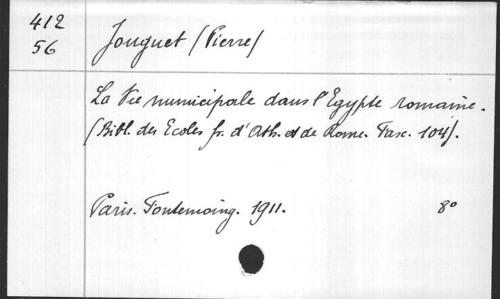 412
56
Jouguet (Pierre)
La Vie municipale dans l'Egypte romaine.
(Bibl. des Ecoles fr. d'Ath. et de Rome. Fasc. 104).
Paris. Fontemoing. 1911. 8°